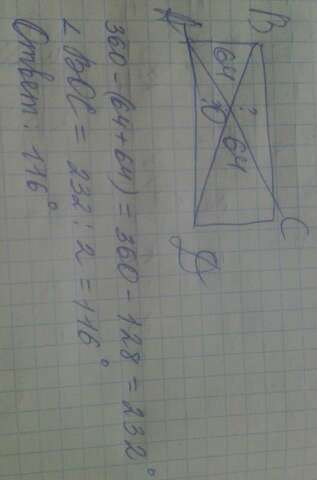 B
C
A
D
64
?
O
64
360 - (64+64) = 360 - 128 = 232°
∠BOC = 232 : 2 = 116°
Ответ: 116°